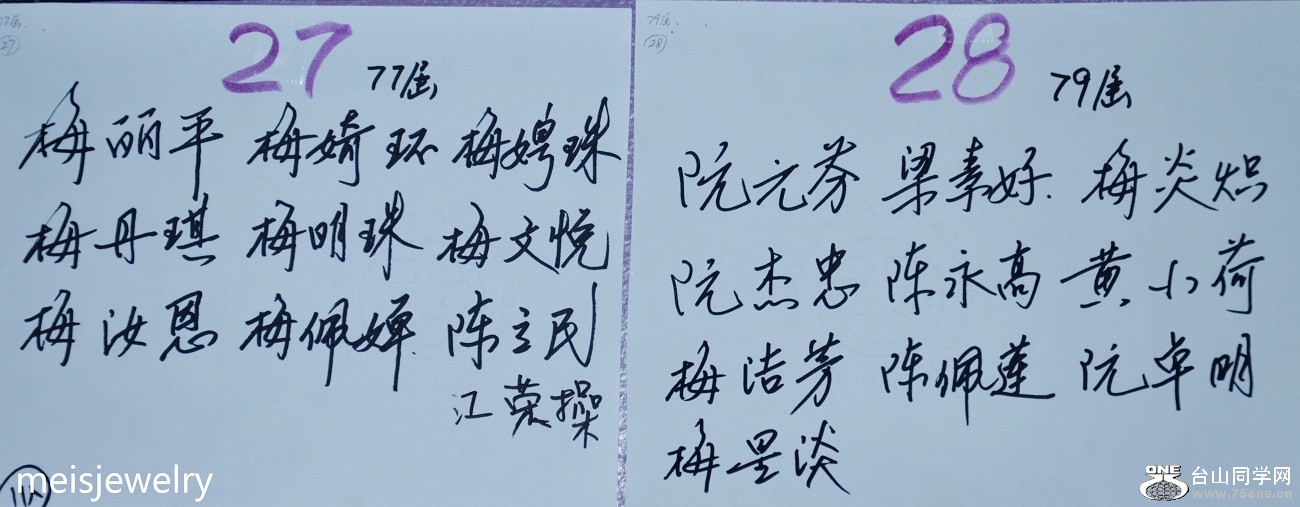 77届
(27)
27 77届
梅丽平 梅婍环 梅娉珠
梅丹琪 梅明珠 梅文悦
梅汝恩 梅佩婵 陈立民
江荣操
11人
meisjewelry
79届
(28)
28 79届
阮元芬 梁素好 梅炎炽
阮杰忠 陈永高 黄小荷
梅洁芳 陈佩莲 阮卓明
梅星淡
ONE 台山同学网
www.75one.cn